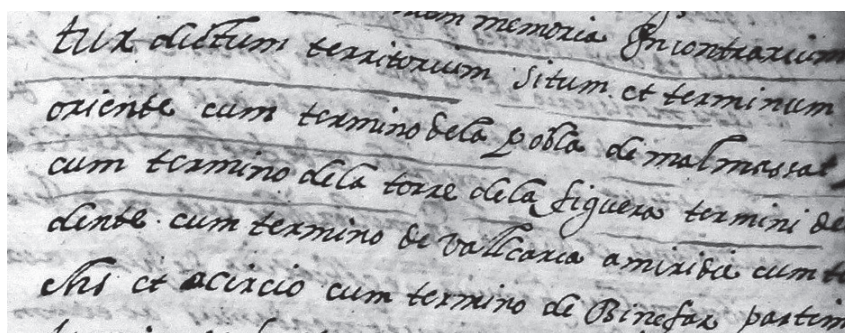 memoria Incontrarium
tur dictum territorium situm et terminum
oriente cum termino dela pobla de malmassat
cum termino dela torre dela figuera termini de
dente cum termino de vallcaria amiridia cum
et acircio cum termino de Binefar partim